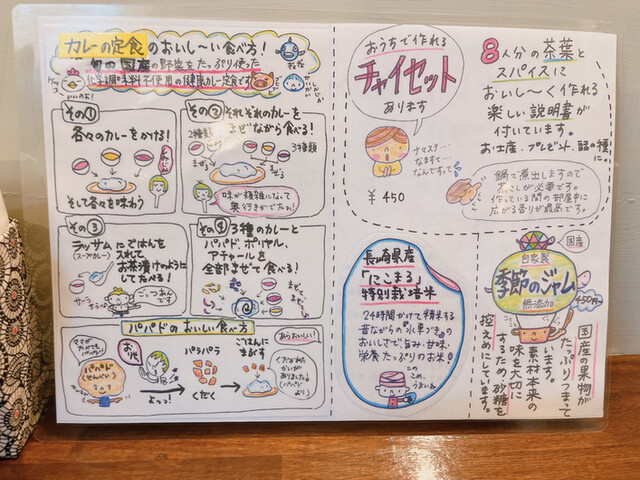 カレーの定食のおいし〜い食べ方！
国産の野菜をたっぷり使った
化学調味料不使用の健康カレー定食です
その①
各々のカレーをかける！
そして各々を味わう
その②
それぞれのカレーを
まぜながら食べる！
2種類
3種類
まぜる
まぜる
味が複雑になって
奥行きがでたわ！
その③
ラッサムにごはんを
(スープカレー)
入れて
お茶漬けのように
して食べる！
サラ
サラ
その④
3種のカレーと
パパド、ポリヤル、
アチャールを
全部まぜて食べる！
まぜ
まぜ
パパドのおいしい食べ方
パパド
せんべい
おりゃ
よっっ！
パラパラ
くだく
ごはんに
まぶす
あらおいしい！
おうちで作れる
チャイセット
あります
ナマステ…
なますて…
なんですって
￥450
8人分の茶葉と
スパイスに
おいし〜く作れる
楽しい説明書が
付いています。
お土産、プレゼント、話の種に。
鍋で煮出しますので
茶こしが必要です。
作っている間の部屋中に
広がる香りが最高です。
長崎県産
「にこまる」
特別栽培米
24時間かけて精米する
昔ながらの水車づきの
おいしさで旨み、甘味、
栄養たっぷりのお米。
この
こめ、
うまいね
国産
自家製
季節のジャム
無添加
450円
国産の果物が
たっぷりつまって
います。
素材本来の
味を大切に
するため、砂糖を
控えめにしています。